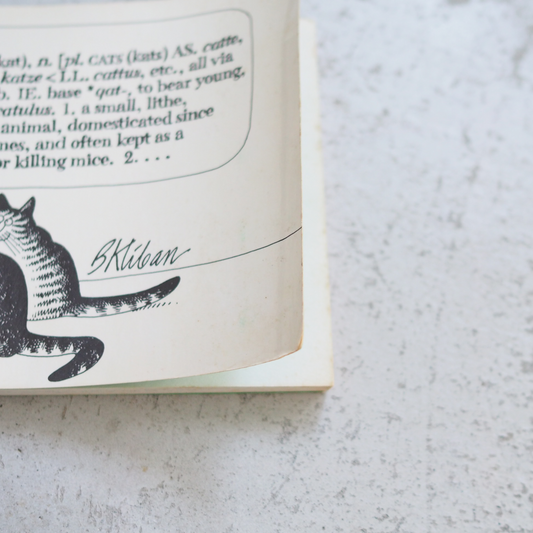 kat), n. [pl. CATS (kats) AS. catte,
katze < LL. cattus, etc., all via
b. IE. base *qat-, to bear young,
catulus. 1. a small, lithe,
animal, domesticated since
nes, and often kept as a
or killing mice. 2. . . .
B Kliban